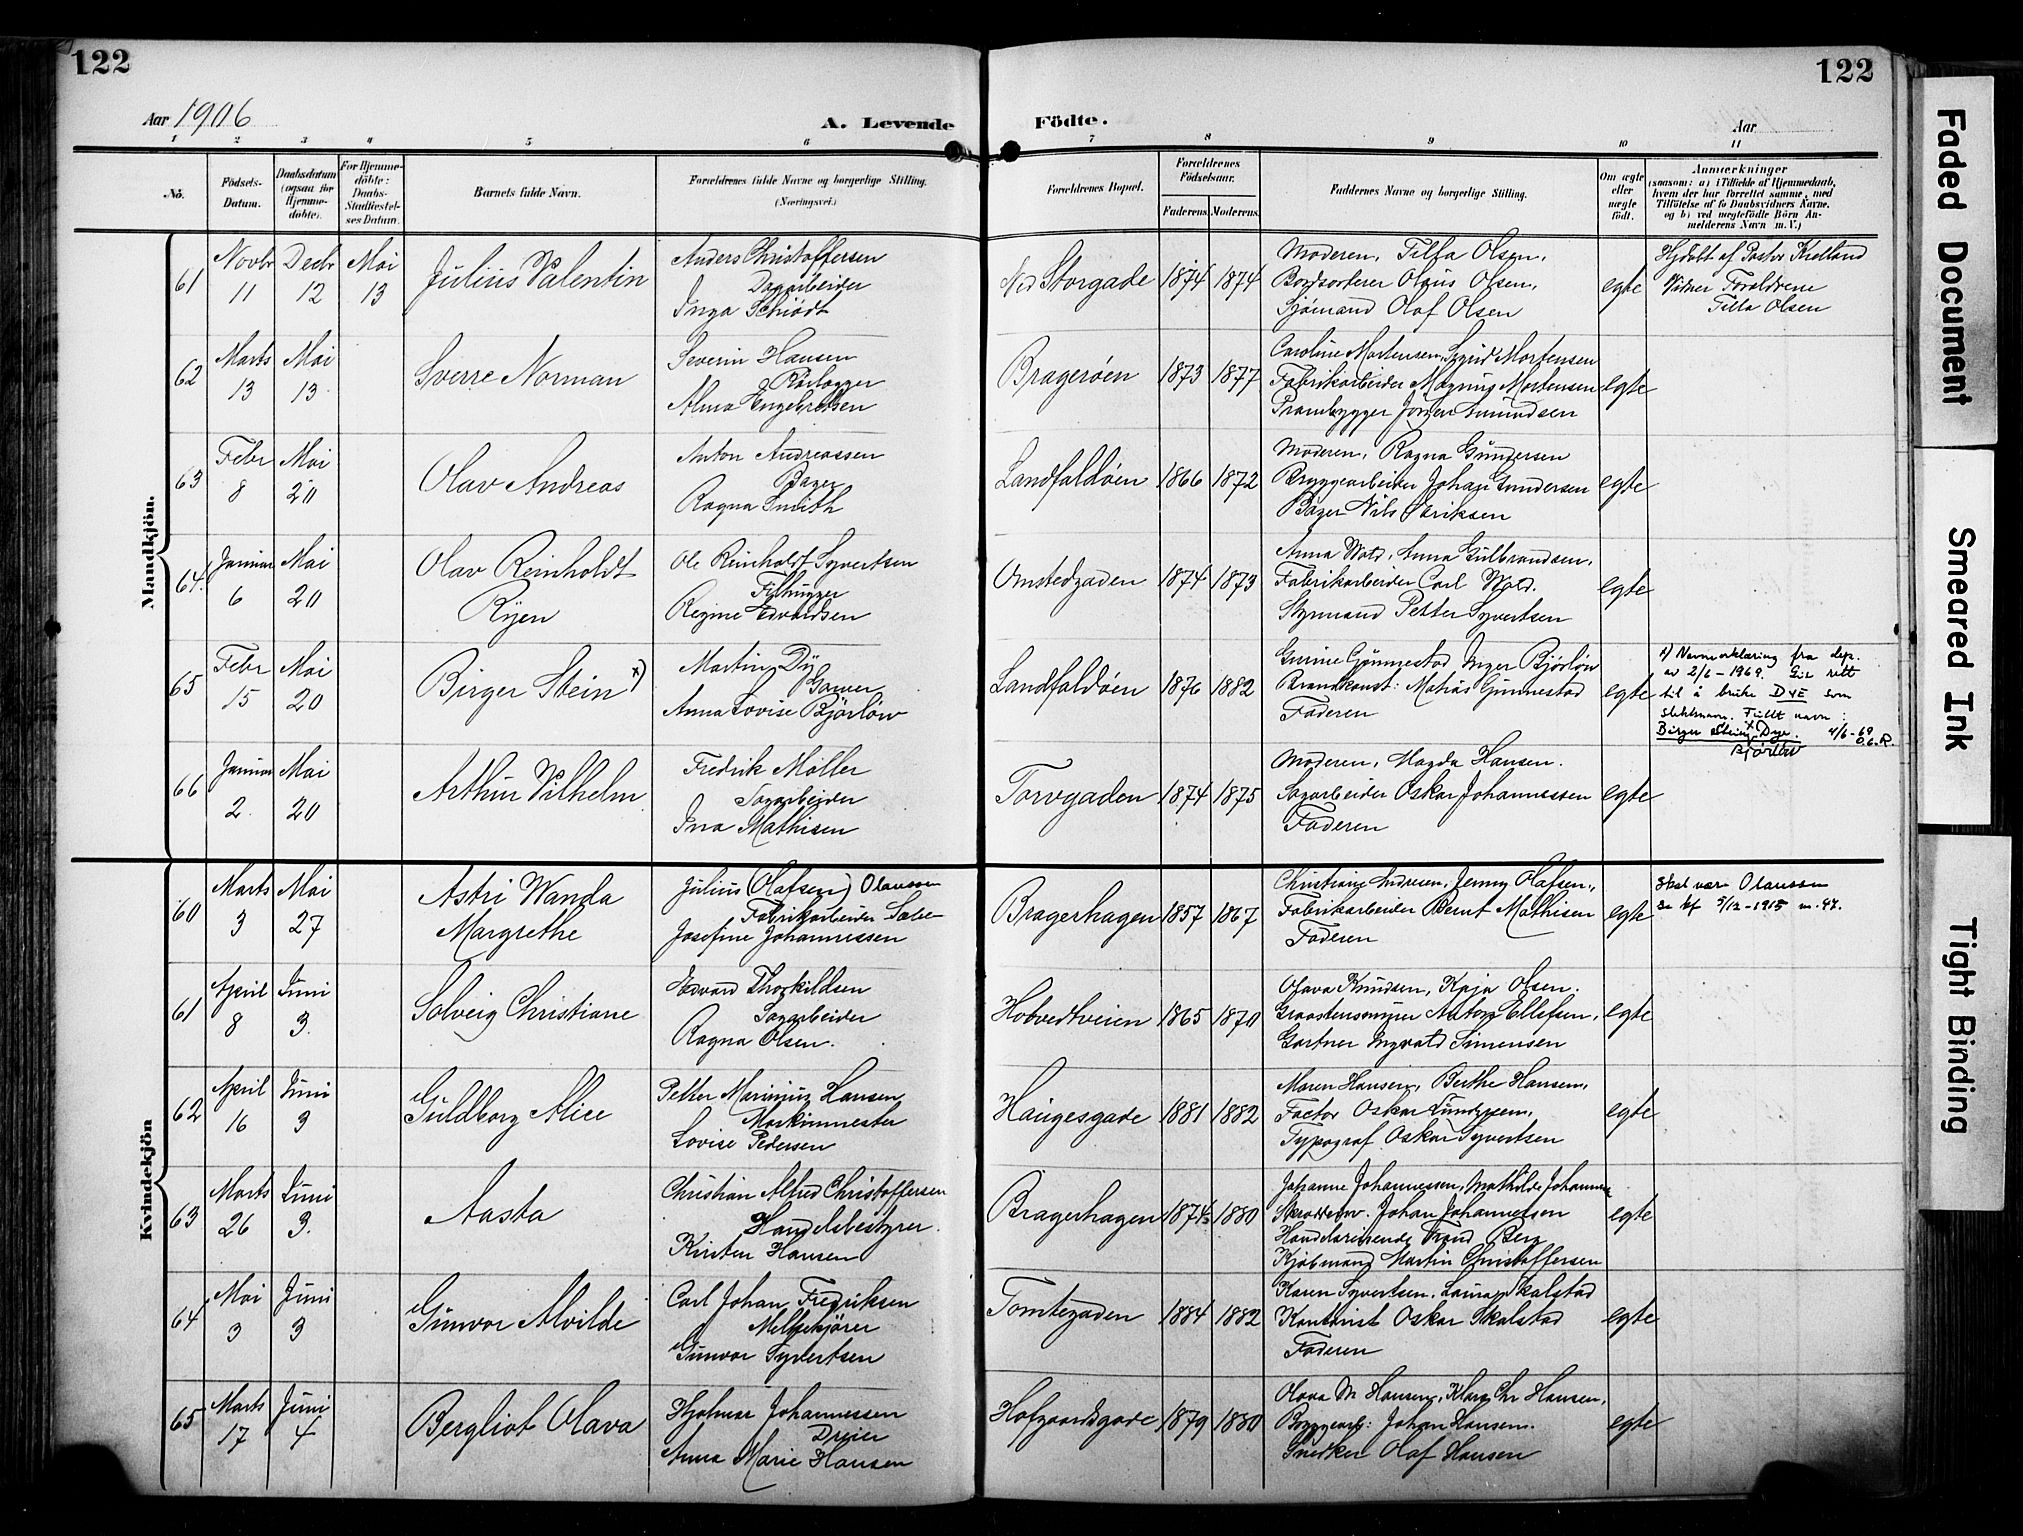 122
122
Aar 1906
A. Levende
Födte.
Aar
1 2 3 4 5 6 7 8 9 10 11
No.
Födsels-
Datum.
Daabsdatum
(ogsaa for
Hjemme-
döbte).
For Hjemme-
döbte:
Daabs-
Stadfæstel-
ses Datum.
Barnets fulde Navn.
Forældrenes fulde Navne og borgerlige Stilling.
(Næringsvei.)
Forældrenes Bopæl.
Forældrenes
Födselsaar.
Faderens
Moderens
Faddernes Navne og borgerlige Stilling.
Om ægte
eller
uægte
födt.
Anmærkninger
(saasom: a) i Tilfælde af Hjemmedaab,
hvem der har forrettet samme, med
Tilföielse af to Daabsvidners Navne,
og b) ved uægtefödte Börn An-
melderens Navn m. V.)
Mandkjön.
61
Novbr 11
Decbr 12
Mai 13
Julius Valentin
Anders Christoffersen
Dagarbeider
Inga Schiödt
Ned Storgade
1874
1874
Moderen, Tilla Olsen,
Bordsorterer Olaus Olsen,
Sjömand Olaf Olsen
egte
Hjdöbt af Pastor Kielland
Vidner Foraldrene
Tilla Olsen
62
Marts 13
Mai 13
Sverre Norman
Severin Hansen
Rörlægger
Alma Engebretsen
Bragerøen
1873
1877
Caroline Mortensen, Sigrid Mortensen
Fabrikarbeider Magnus Mortensen
Prambygger Jörgen Amundsen
egte
63
Febr 8
Mai 20
Olav Andreas
Anton Andreassen
Bager
Ragna Smith
Landfaldöen
1866
1872
Moderen, Ragna Gundersen
Bryggearbeider Johan Gundersen
Bager Nils Eriksen
egte
64
Januar 6
Mai 20
Olav Reinholdt
Ryen
Ole Reinholdt Syvertsen
Filhugger
Regine Edvardsen
Omstedgaden
1874
1873
Anna Wold, Anna Gulbrandsen,
Fabrikarbeider Carl Wold.
Styrmand Petter Syvertsen
egte
65
Febr 15
Mai 20
Birger Stein x)
Martin Dÿ
Garver
Anna Lovise Björlöw
Landfaldöen
1876
1882
Gurine Gunnestad, Inger Björlöw
Brandkonst: Matias Gunnestad
Faderen
egte
x) Navneerklæring fra dep.
av 2/6-1969. Gir rett
til å bruke DYE som
slektsnavn. Fullt navn:
Birger Stein x Dye. 4/6-69
Bjørløw O.G.R.
66
Januar 2
Mai 20
Arthur Vilhelm
Fredrik Möller
Sagarbeider
Ina Mathisen
Torvgaden
1874
1875
Moderen, Magda Hansen.
Sagarbeider Oskar Johannessen
Faderen
egte
Kvindekjön
60
Marts 3
Mai 27
Astri Wanda
Margrethe
Julius (Olafsen) Olaussen
Fabrikarbeider Sæbe
Josefine Johannessen
Bragerhagen
1857
1867
Christiane Andresen, Jenny Olafsen,
Fabrikarbeider Bernt Mathisen
Faderen
egte
Skal være Olaussen
se kf 5/12-1915 nr. 47.
61
April 8
Juni 3.
Solveig Christiane
Edvard Thorkildsen
Sagarbeider
Ragna Olsen.
Hotvedtveien
1865
1870
Olava Knudsen, Kaja Olsen.
Graastensmurer Anton Ellefsen,
Gartner Ingvald Simensen
egte
62
April 16
Juni 3
Guldborg Alice
Petter Marinius Hansen
Maskinmester
Lovise Pedersen
Haugesgade
1881
1882
Maren Hansen, Berthe Hansen,
Factor Oskar Lundgreen,
Typograf Oskar Syvertsen
egte
63
Marts 26
Juni 3.
Aasta
Christian Alfred Christoffersen
Handelsbestyrer.
Kirsten Hansen
Bragerhagen
1874
1880
Johanne Johannessen, Mathilde Johannes
Johan Johannesen
Handelsreisende Berg
Kjöbmand Martin Christoffersen
egte
64
Mai 3
Juni 3
Gunvor Alvilde
Carl Johan Fredriksen
Melkekjører
Gunvor Syvertsen
Tomtegaden
1884
1882
Karen Syvertsen, Laura Skalstad
Kontorist Oskar Skalstad
Faderen
egte
65
Marts 17
Juni 4
Bergliot Olava
Hjalmar Johannessen
Dreier
Anna Marie Hansen
Hofgaardsgade
1879
1880
Olava M Hansen, Klara Chr Hansen,
Bryggearb: Johan Hansen.
Snedker Olaf Hansen
egte
Faded Document
Smeared Ink
Tight Binding